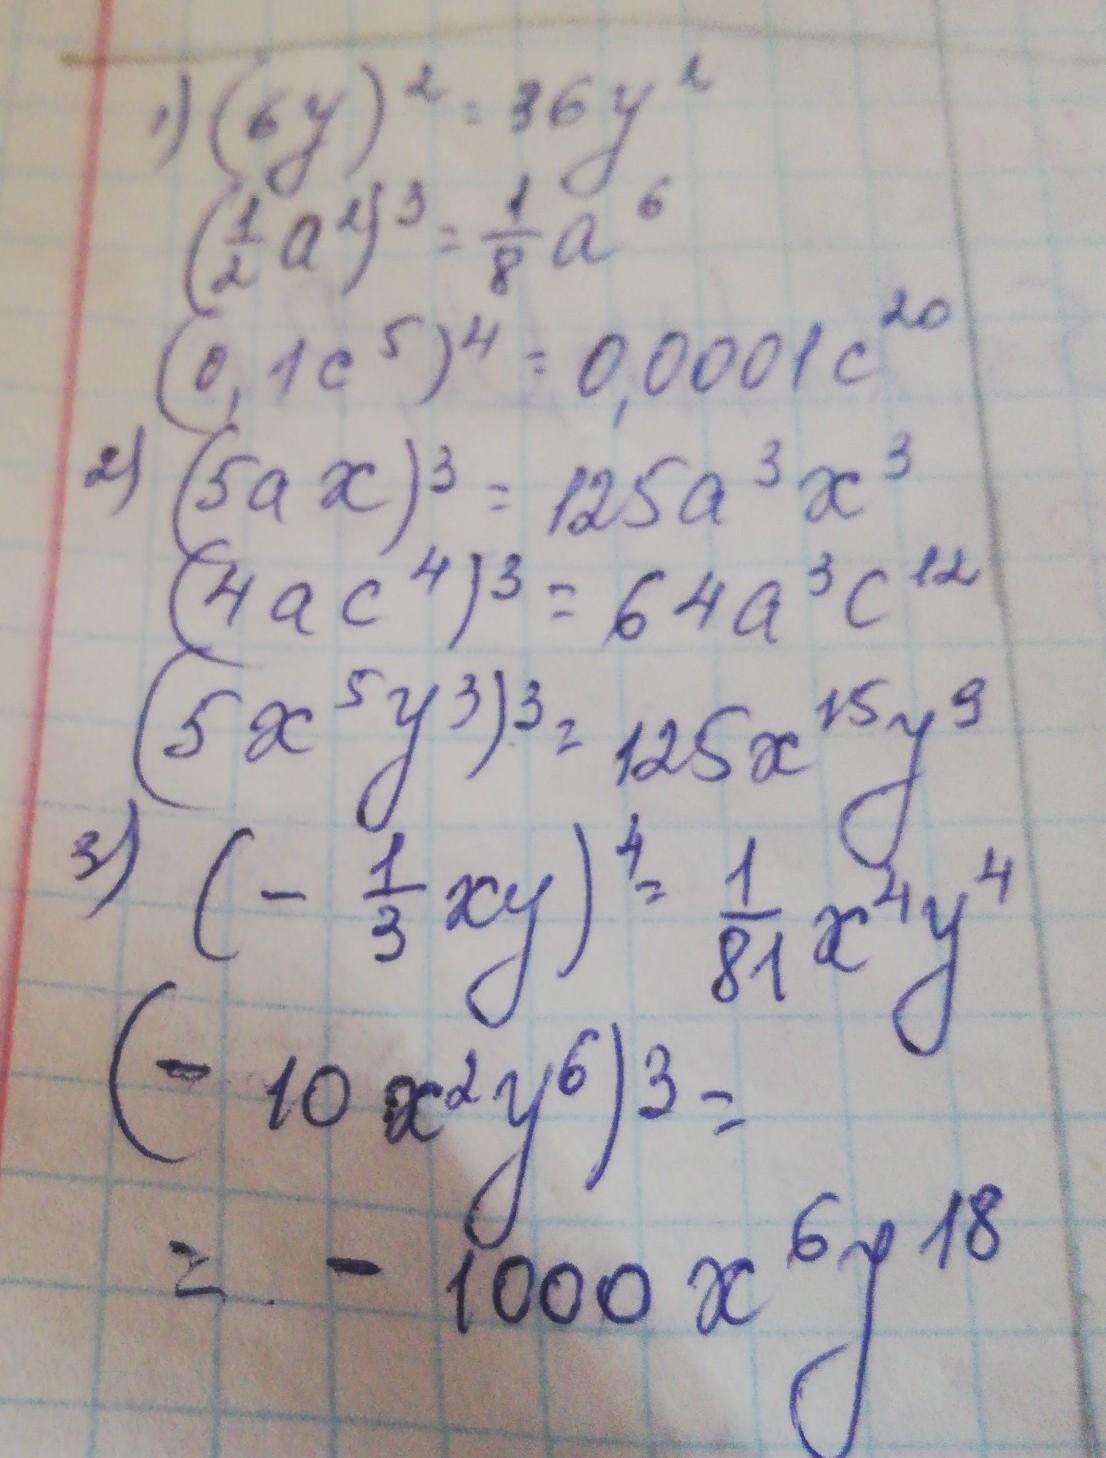 1) (6y)² = 36y²
(1/2 a²)³ = 1/8 a⁶
(0,1c⁵)⁴ = 0,0001c²⁰
2) (5ax)³ = 125a³x³
(4ac⁴)³ = 64a³c¹²
(5x⁵y³)³ = 125x¹⁵y⁹
3) (- 1/3 xy)⁴ = 1/81 x⁴y⁴
(- 10x²y⁶)³ =
= - 1000x⁶y¹⁸